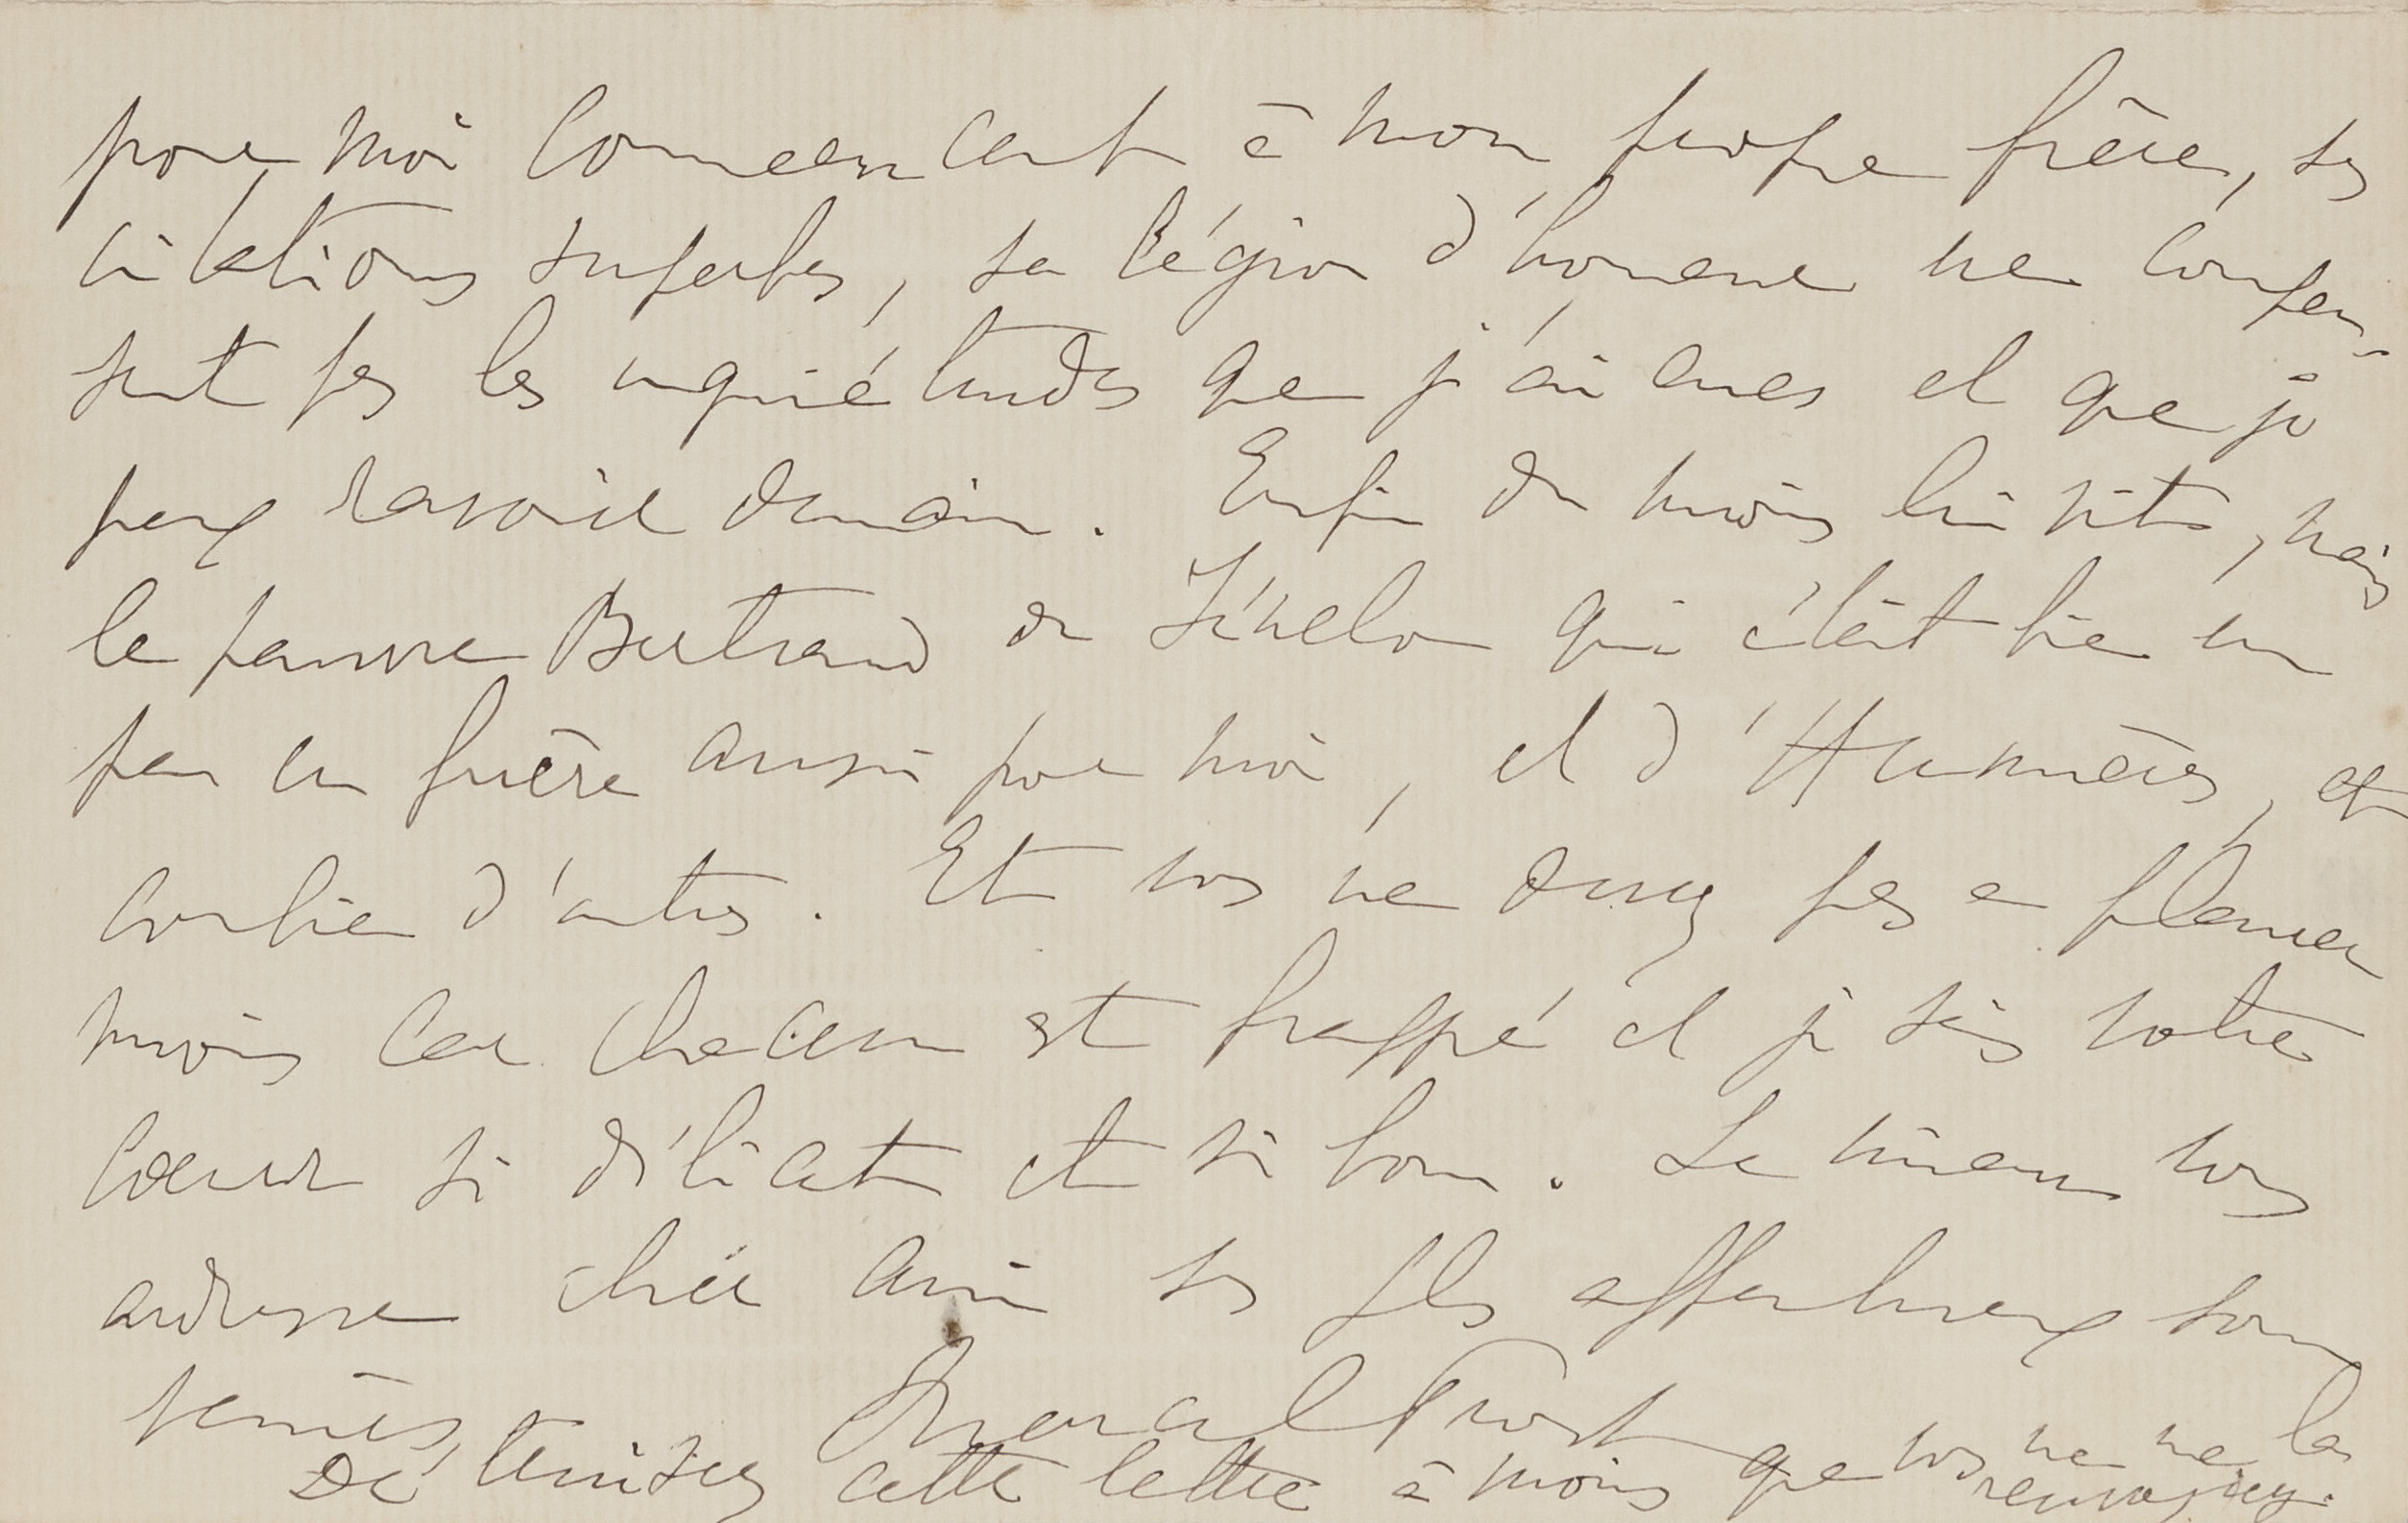 pour moi commençant à mon propre frère, ses
citations superbes, sa légion d'honneur ne compen-
sent pas les inquiétudes que j'ai eues et que je
peux ravoir demain. Enfin du moins lui vit, mais
le pauvre Bertrand de Fénelon qui était bien un
peu un frère aussi pour moi, et d'Humières, et
combien d'autres. Et vous ne devez pas en pleurer
moins car chacun est frappé et je sais votre
cœur si délicat et si bon. Le mien vous
adresse cher ami ses plus affectueux sou
venirs,
Marcel Proust
Détruisez cette lettre à moins que vous ne me la
renvoyiez.